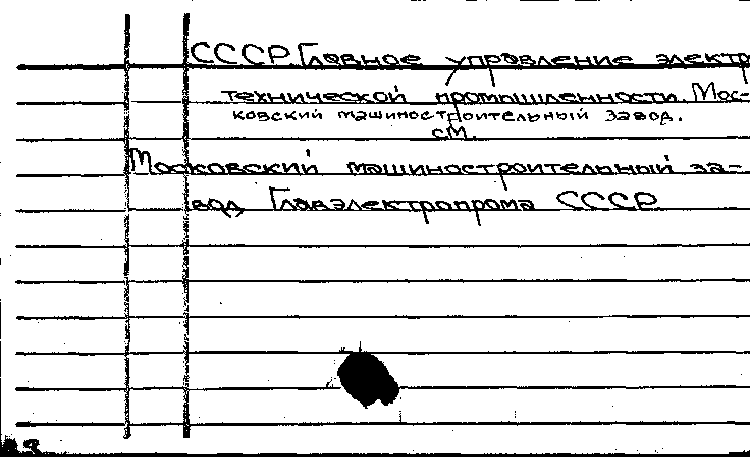 СССР. Главное управление электро
технической промышленности. Мос-
ковский машиностроительный завод.
см.
Московский машиностроительный за-
вод Главэлектропрома СССР